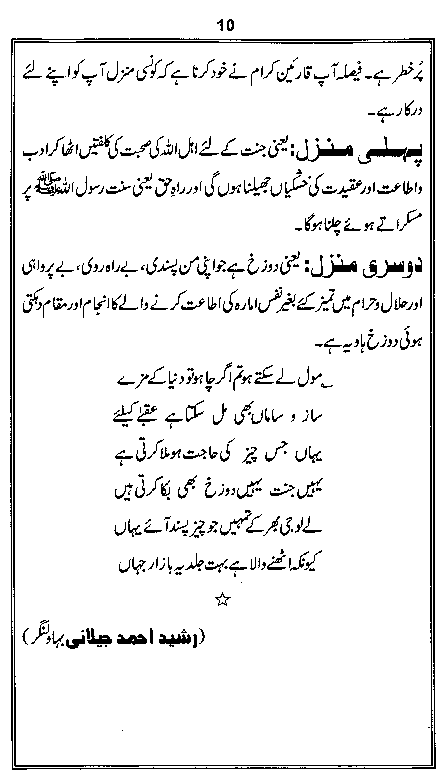 10
پُر خطر ہے۔ فیصلہ آپ قارئین کرام نے خود کرنا ہے کہ کونسی منزل آپ کو اپنے لئے
درکار ہے۔
پہلی منزل: یعنی جنت کے لئے اھل اللہ کی صحبت کی کلفتیں اٹھا کر ادب
و اطاعت اور عقیدت کی خشکیاں جھیلنا ہوں گی اور راہِ حق یعنی سنت رسول اللہ ﷺ پر
مسکراتے ہوئے چلنا ہو گا۔
دوسری منزل: یعنی دوزخ ہے جو اپنی من پسندی، بے راہ روی، بے پرواہی
اور حلال و حرام میں تمیز کئے بغیر نفس امارہ کی اطاعت کرنے والے کا انجام اور مقام دہکتی
ہوئی دوزخ ہاویہ ہے۔
مول لے سکتے ہو تم اگر چاہو تو دنیا کے مزے
ساز و ساماں بھی مل سکتا ہے عقبےٰ کیلئے
یہاں جس چیز کی حاجت ہو ملا کرتی ہے
یہیں جنت یہیں دوزخ بھی بکا کرتی ہیں
لے لو جی بھر کے تمہیں جو چیز پسند آئے یہاں
کیونکہ اٹھنے والا ہے بہت جلد یہ بازار جہاں
☆
(رشید احمد جیلانی بہاولنگر)